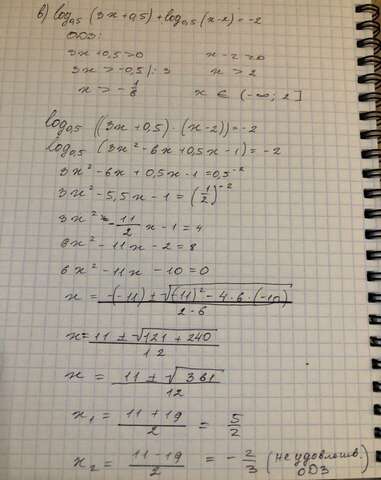 в) log₀,₅ (3x+0,5)+log₀,₅ (x-2)=-2
ОДЗ:
3x+0,5>0 x-2>0
3x>-0,5|:3 x>2
x>-1/6 x ∈ (-∞; 2]
log₀,₅ ((3x+0,5)·(x-2))=-2
log₀,₅ (3x²-6x+0,5x-1)=-2
3x²-6x+0,5x-1=0,5⁻²
3x²-5,5x-1=(1/2)⁻²
3x²-11/2 x-1=4
6x²-11x-2=8
6x²-11x-10=0
x=(-(-11)±√((11)²-4·6·(-10)))/(2·6)
x=(11±√(121+240))/12
x=(11±√361)/12
x₁=(11+19)/2=5/2
x₂=(11-19)/2=-2/3 (не удовлетв. ОДЗ